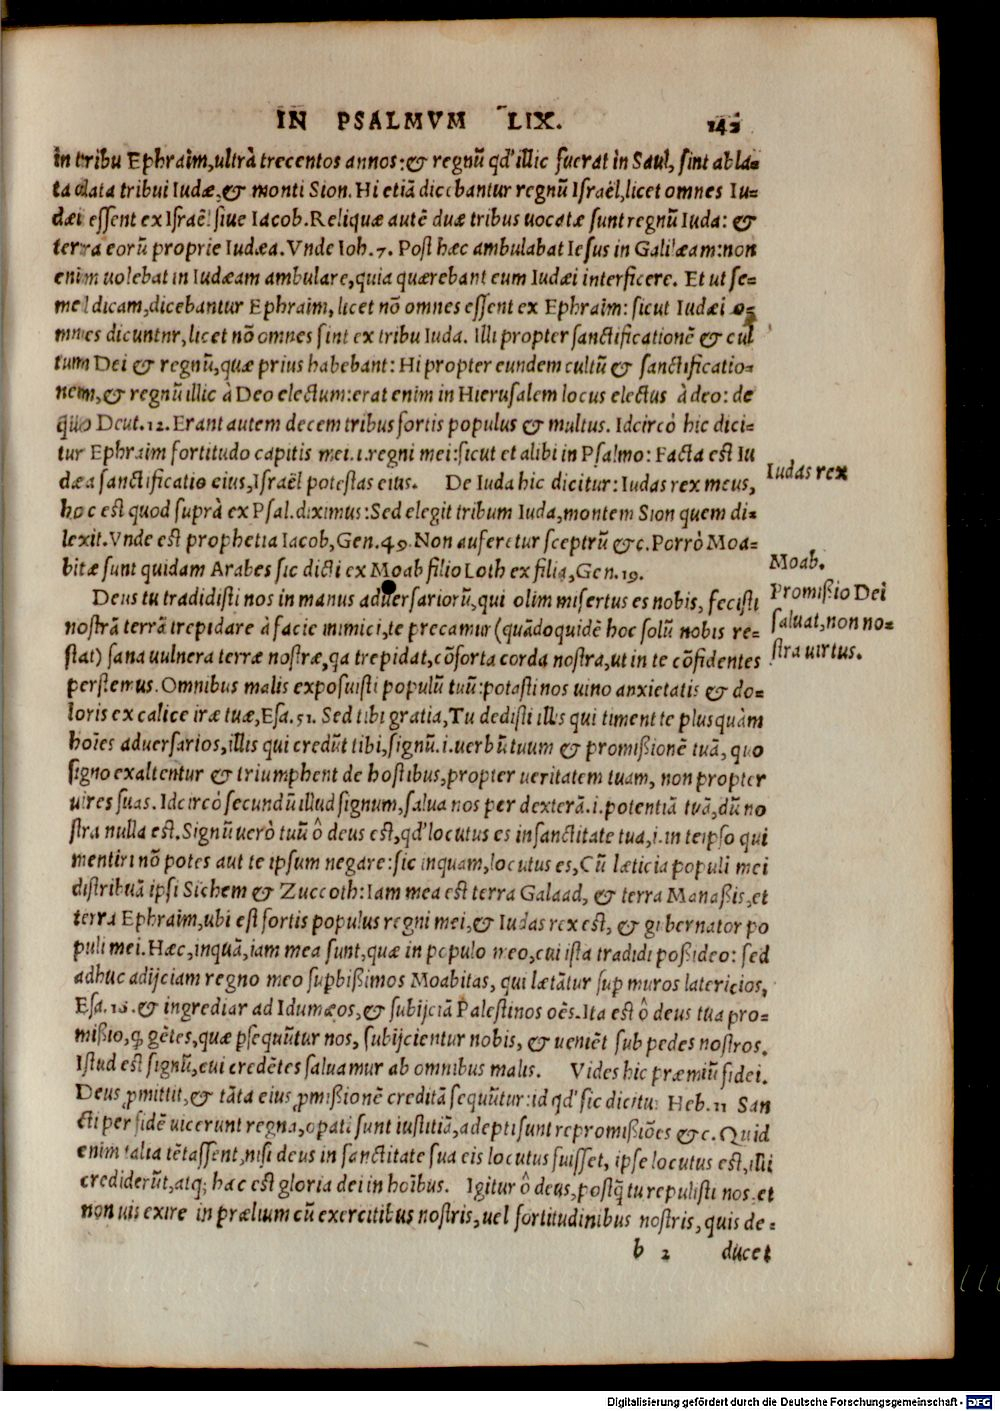 IN PSALMVM LIX. 142
in tribu Ephraim,ultrà trecentos annos:& regnũ qd' illic fuerat in Saul, sint abla-
ta data tribui Iudæ,& monti Sion. Hi etiã dicebantur regnũ Israël,licet omnes Iu-
dæi essent ex Israël siue Iacob. Reliquæ autē duæ tribus uocatæ sunt regnũ Iuda: &
terra eorũ proprie Iudæa. Vnde Ioh. 7. Post hæc ambulabat Iesus in Galilæam:non
enim uolebat in Iudæam ambulare,quia quærebant eum Iudæi interficere. Et ut se-
mel dicam,dicebantur Ephraim, licet nõ omnes essent ex Ephraim: sicut Iudæi o-
mnes dicuntnr, licet nõ omnes sint ex tribu Iuda. Illi propter sanctificationē & cul
tum Dei & regnũ,quæ prius habebant: Hi propter eundem cultũ & sanctificatio-
nem,& regnũ illic à Deo electum:erat enim in Hierusalem locus electus à deo: de
quo Deut. 12. Erant autem decem tribus fortis populus & multus. Idcircò hic dici-
tur Ephraim fortitudo capitis mei. i. regni mei:sicut et alibi in Psalmo: Facta est Iu
dæa sanctificatio eius, Israël potestas eius. De Iuda hic dicitur: Iudas rex meus,
Iudas rex
hoc est quod suprà ex Psal. diximus: Sed elegit tribum Iuda,montem Sion quem di-
lexit. Vnde est prophetia Iacob, Gen. 49. Non auferetur sceptrũ &c. Porrò Moa-
bitæ sunt quidam Arabes sic dicti ex Moab filio Loth ex filia, Gen. 19.
Moab.
Deus tu tradidisti nos in manus aduersariorũ,qui olim misertus es nobis, fecisti
Promißio Dei
nostrã terrã trepidare à facie inimici,te precamur (quãdoquidē hoc solũ nobis re-
saluat,non no-
stat) sana uulnera terræ nostræ,qa trepidat,cõforta corda nostra,ut in te cõfidentes
stra uirtus.
perstemus. Omnibus malis exposuisti populũ tuũ:potasti nos uino anxietatis & do-
loris ex calice iræ tuæ,Esa. 51. Sed tibi gratia, Tu dedisti illis qui timent te plus quàm
hoīes aduersarios, illis qui credũt tibi, signũ. i. uerbũ tuum & promißionē tuã, quo
signo exaltentur & triumphent de hostibus,propter ueritatem tuam, non propter
uires suas. Idcircò secundũ illud signum,salua nos per dexterã. i. potentiã tuã,dũ no
stra nulla est. Signũ uerò tuũ ô deus est,qd' locutus es in sanctitate tua, i. in teipso qui
mentiri nõ potes aut te ipsum negare:sic inquam,locutus es, Cũ læticia populi mei
distribuã ipsi Sichem & Zuccoth: Iam mea est terra Galaad, & terra Manaßis,et
terra Ephraim,ubi est fortis populus regni mei,& Iudas rex est, & gubernator po
puli mei. Hæc,inquã,iam mea sunt,quæ in populo meo,cui ista tradidi poßideo: sed
adhuc adijciam regno meo supbißimos Moabitas, qui lætãtur sup muros latericios,
Esa. 16. & ingrediar ad Idumæos,& subijciã Palestinos oēs. Ita est ô deus tua pro-
mißio, ꝙ gētes,quæ psequũtur nos, subijcientur nobis, & ueniēt sub pedes nostros.
Istud est signũ,cui credētes saluamur ab omnibus malis. Vides hic præmiũ fidei.
Deus ꝓmittit,& tãta eius ꝓmißionē creditã sequũtur:id qd' sic dicitur Heb. 11 San
cti per fidē uicerunt regna,opati sunt iustitiã,adepti sunt repromißiões &c. Quid
enim talia tētassent,nisi deus in sanctitate sua eis locutus fuisset, ipse locutus est,illi
crediderũt,atq; hæc est gloria dei in hoībus. Igitur ô deus,postq̃ tu repulisti nos,et
non uis exire in prælium cũ exercitibus nostris,uel fortitudinibus nostris, quis de-
b 2 ducet
Digitalisierung gefördert durch die Deutsche Forschungsgemeinschaft - DFG